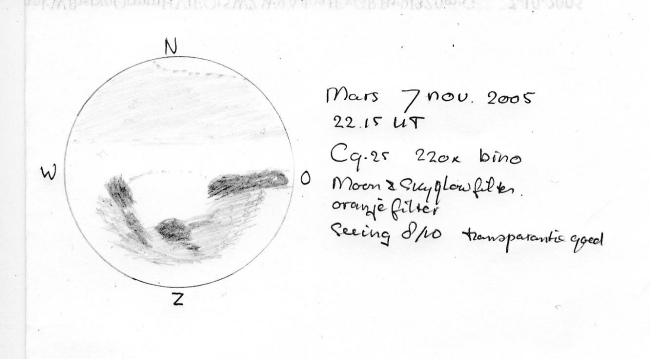 N
W
O
Z
Mars 7 nov. 2005
22.15 UT
C9.25 220x bino
Moon & Skyglowfilter.
oranje filter
Seeing 8/10 transparantie goed